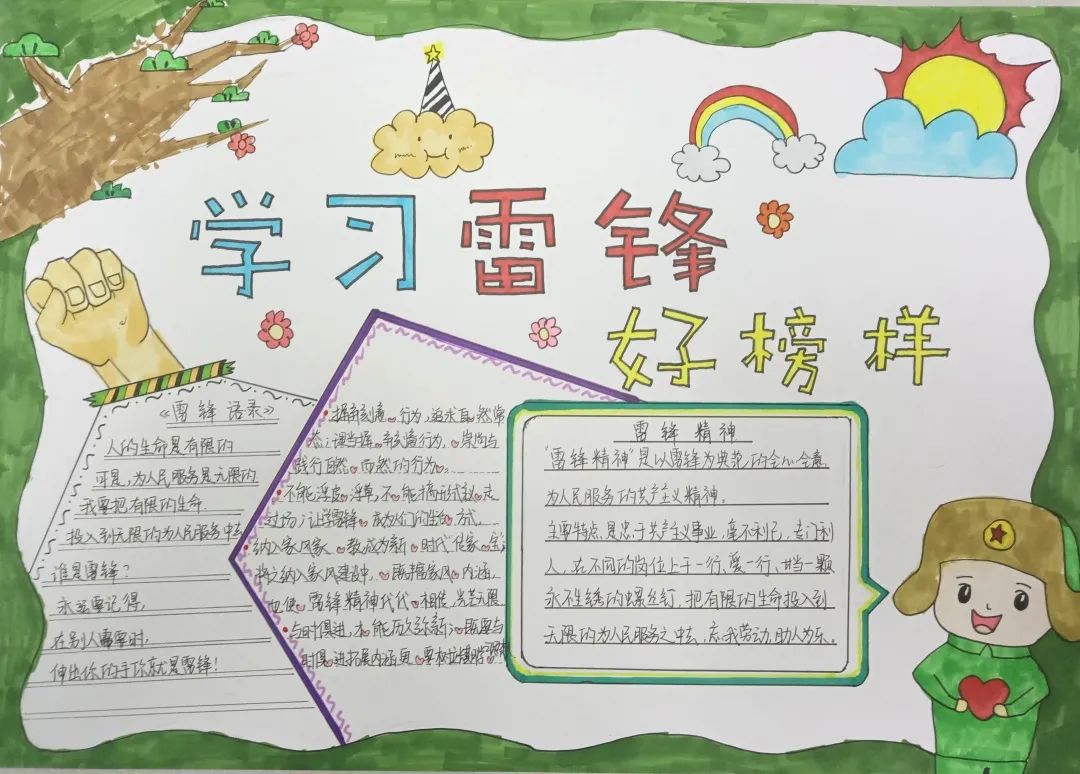 学习雷锋
好榜样
《雷锋语录》
人的生命是有限的
可是,为人民服务是无限的
我要把有限的生命
投入到无限的为人民服务中去
谁是雷锋?
永远要记得,
在别人需要时,
伸出你的手你就是雷锋!
行为,追求自然常
态;谓当择 行为,崇尚与
践行自然 而然的行为
不能浮皮 不能搞形式 走
过场;让学雷锋 成为人们的生活方式
纳入家风家 教成为新时代
将之纳入家风建设中, 家风内涵
也使雷锋精神代代相传 无限
与时俱进,不能历久弥新;既要与
时俱进拓展内涵
雷锋精神
“雷锋精神”是以雷锋为典范的全心全意
为人民服务的共产主义精神。
主要特点是忠于共产主义事业,毫不利己,专门利
人,在不同的岗位上干一行、爱一行,甘当一颗
永不生锈的螺丝钉,把有限的生命投入到
无限的为人民服务之中去,忘我劳动,助人为乐。